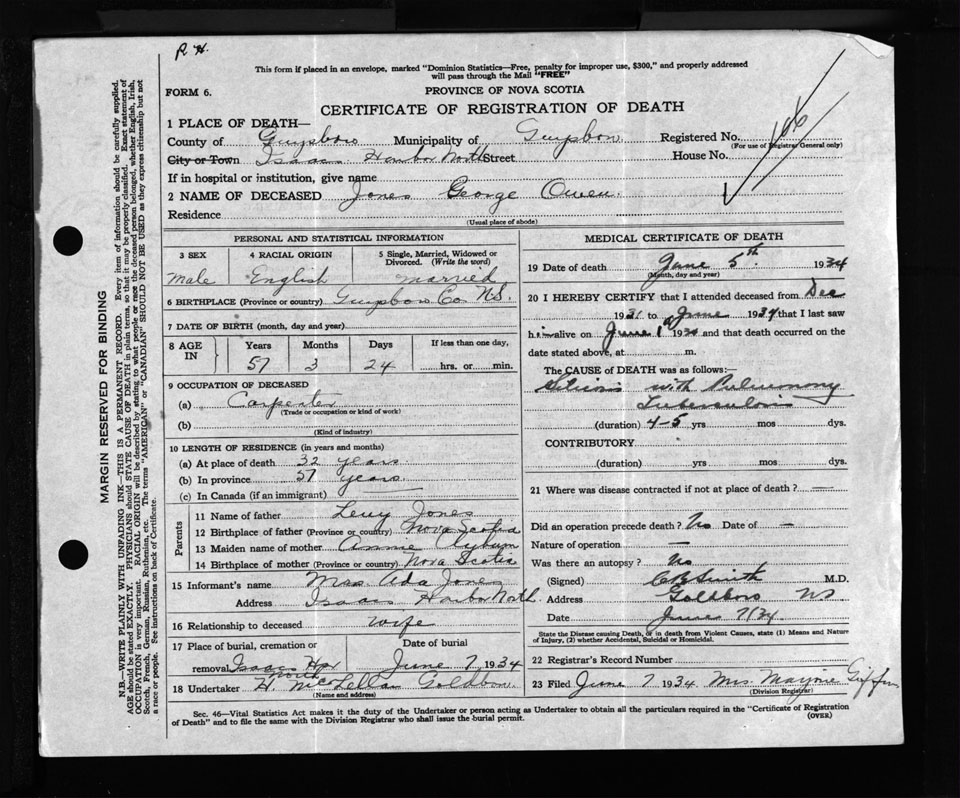 P. H.
This form if placed in an envelope, marked "Dominion Statistics—Free, penalty for improper use, $300," and properly addressed
will pass through the Mail "FREE"
FORM 6.
PROVINCE OF NOVA SCOTIA
CERTIFICATE OF REGISTRATION OF DEATH
1 PLACE OF DEATH—
County of Guysboro Municipality of Guysboro Registered No.
(For use of Registrar General only)
City or Town Isaacs Harbor North Street House No.
If in hospital or institution, give name
2 NAME OF DECEASED Jones George Owen
Residence
(Usual place of abode)
PERSONAL AND STATISTICAL INFORMATION
3 SEX 4 RACIAL ORIGIN 5 Single, Married, Widowed or
Divorced. (Write the word)
Male English Married
6 BIRTHPLACE (Province or country) Guysboro Co N.S.
7 DATE OF BIRTH (month, day and year)
8 AGE IN Years Months Days If less than one day,
57 3 24 hrs. or min.
9 OCCUPATION OF DECEASED
(a) Carpenter
(Trade or occupation or kind of work)
(b)
(Kind of industry)
10 LENGTH OF RESIDENCE (in years and months)
(a) At place of death 32 years
(b) In province 57 years
(c) In Canada (if an immigrant) —
Parents
11 Name of father Levy Jones
12 Birthplace of father (Province or country) Nova Scotia
13 Maiden name of mother Annie
14 Birthplace of mother (Province or country) Nova Scotia
15 Informant's name Mrs Ada Jones
Address Isaacs Harbor North
16 Relationship to deceased wife
17 Place of burial, cremation or Date of burial
removal Isaacs Hbr North June 7 1934
18 Undertaker H. McLellan Goldboro
(Name and address)
MEDICAL CERTIFICATE OF DEATH
19 Date of death June 5th 1934
(Month, day and year)
20 I HEREBY CERTIFY that I attended deceased from Dec
1931 to June 1934 that I last saw
him alive on June 1 1934 and that death occurred on the
date stated above, at m.
The CAUSE of DEATH was as follows:
Silicosis with Pulmonary
Tuberculosis
(duration) 4-5 yrs mos dys.
CONTRIBUTORY
(duration) yrs mos dys.
21 Where was disease contracted if not at place of death? —
Did an operation precede death? No Date of —
Nature of operation —
Was there an autopsy? No
(Signed) Smith M.D.
Address Goldboro NS
Date June 7/34
State the Disease causing Death, or in death from Violent Causes, state (1) Means and Nature
of Injury, (2) whether Accidental, Suicidal or Homicidal.
22 Registrar's Record Number
23 Filed June 7 1934 Mrs. Maynie Giffin
(Division Registrar)
Sec. 46—Vital Statistics Act makes it the duty of the Undertaker or person acting as Undertaker to obtain all the particulars required in the "Certificate of Registration
of Death" and to file the same with the Division Registrar who shall issue the burial permit.
(OVER)
MARGIN RESERVED FOR BINDING
N.B.—WRITE PLAINLY WITH UNFADING INK—THIS IS A PERMANENT RECORD. Every item of information should be carefully supplied.
AGE should be stated EXACTLY. PHYSICIANS should STATE CAUSE OF DEATH in plain terms, so that it may be properly classified. Exact statement of
OCCUPATION is very important. RACIAL ORIGIN will be described by stating to what people or race the deceased person belonged, whether English, Irish,
Scotch, French, German, Russian, Ruthenian, etc. The terms "AMERICAN" or "CANADIAN" SHOULD NOT BE USED as they express citizenship but not
a race or people. See instructions on back of Certificate.